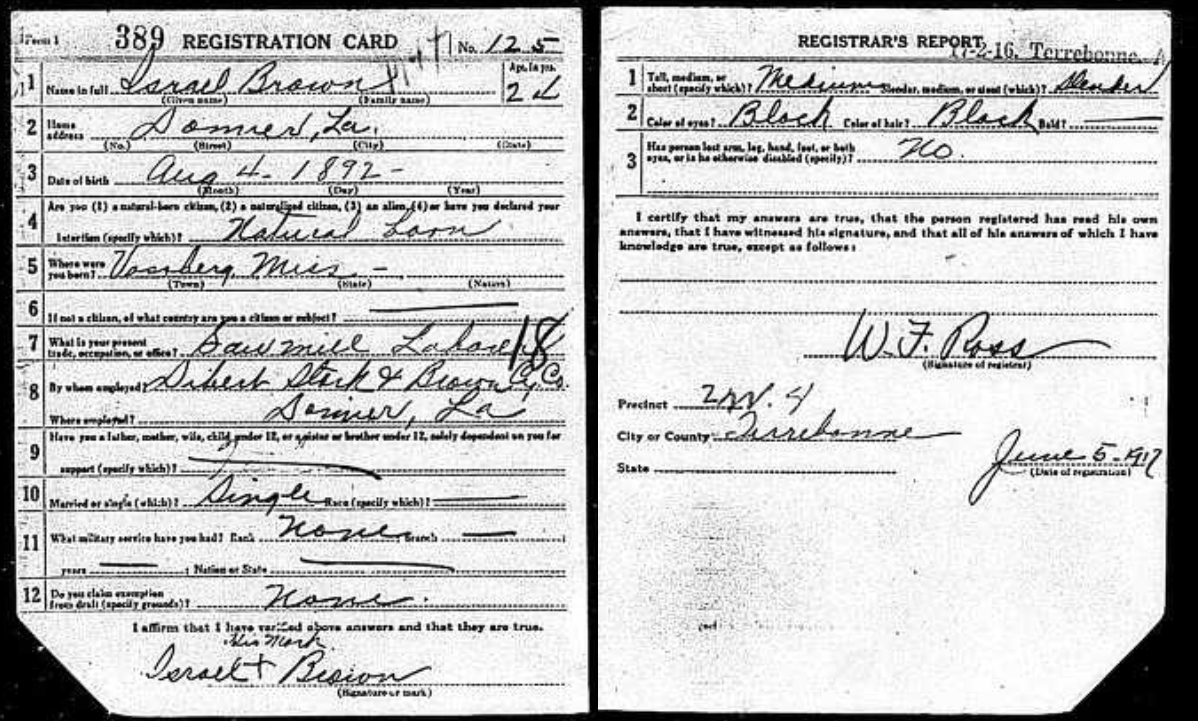 Form 1 389 REGISTRATION CARD No. 125
1 Name in full Israel Brown Age, in yrs. 24
(Given name) (Family name)
2 Home address Donner, La.
(No.) (Street) (City) (State)
3 Date of birth Aug 4 - 1892 -
(Month) (Day) (Year)
4 Are you (1) a natural-born citizen, (2) a naturalized citizen, (3) an alien, (4) or have you declared your
intention (specify which)? Natural born
5 Where were you born? Vossberg, Miss -
(Town) (State) (Nation)
6 If not a citizen, of what country are you a citizen or subject?
7 What is your present trade, occupation, or office? Sawmill Labor 18
8 By whom employed? Dibert Stark & Brown Cy. Co.
Where employed? Donner, La
9 Have you a father, mother, wife, child under 12, or a sister or brother under 12, solely dependent on you for
support (specify which)?
10 Married or single (which)? Single Race (specify which)?
11 What military service have you had? Rank None Branch
years ; Nation or State
12 Do you claim exemption from draft (specify grounds)? None.
I affirm that I have verified above answers and that they are true.
His Mark
Israel + Brown
(Signature or mark)
REGISTRAR'S REPORT 17-2-16. Terrebonne. A
1 Tall, medium, or short (specify which)? Medium Slender, medium, or stout (which)? Slender
2 Color of eyes? Black Color of hair? Black Bald?
3 Has person lost arm, leg, hand, foot, or both eyes, or is he otherwise disabled (specify)? No.
I certify that my answers are true, that the person registered has read his own
answers, that I have witnessed his signature, and that all of his answers of which I have
knowledge are true, except as follows:
W. F. Ross
(Signature of registrar)
Precinct 4
City or County Terrebonne
State June 5 - 1917
(Date of registration)